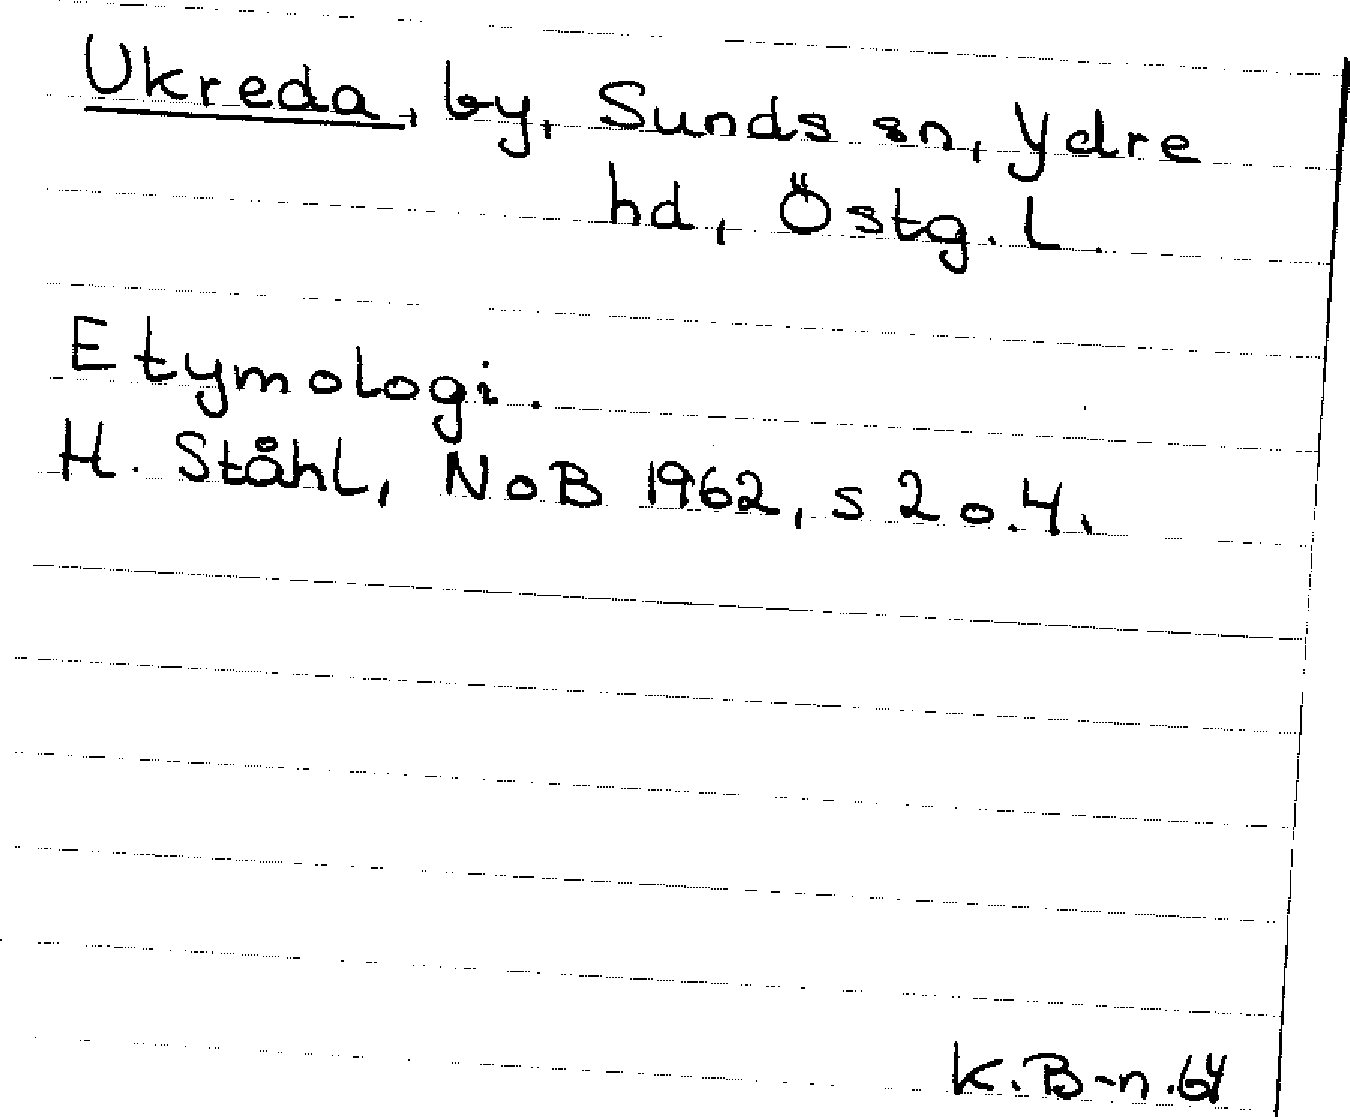 Ukreda, by, Sunds sn, Ydre
hd, Östg. L.
Etymologi.
H. Ståhl, NoB 1962, s 2 o. 4.
K.B-n.64